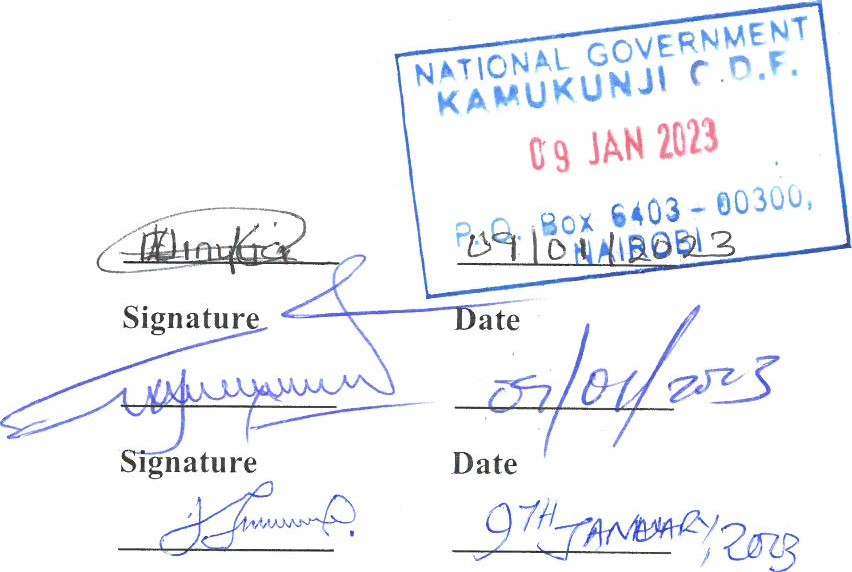 NATIONAL GOVERNMENT
KAMUKUNJI C.D.F.
09 JAN 2023
P.O. Box 6403 - 00300,
NAIROBI
09/01/2023
Signature Date
09/01/2023
Signature Date
9TH JANUARY, 2023